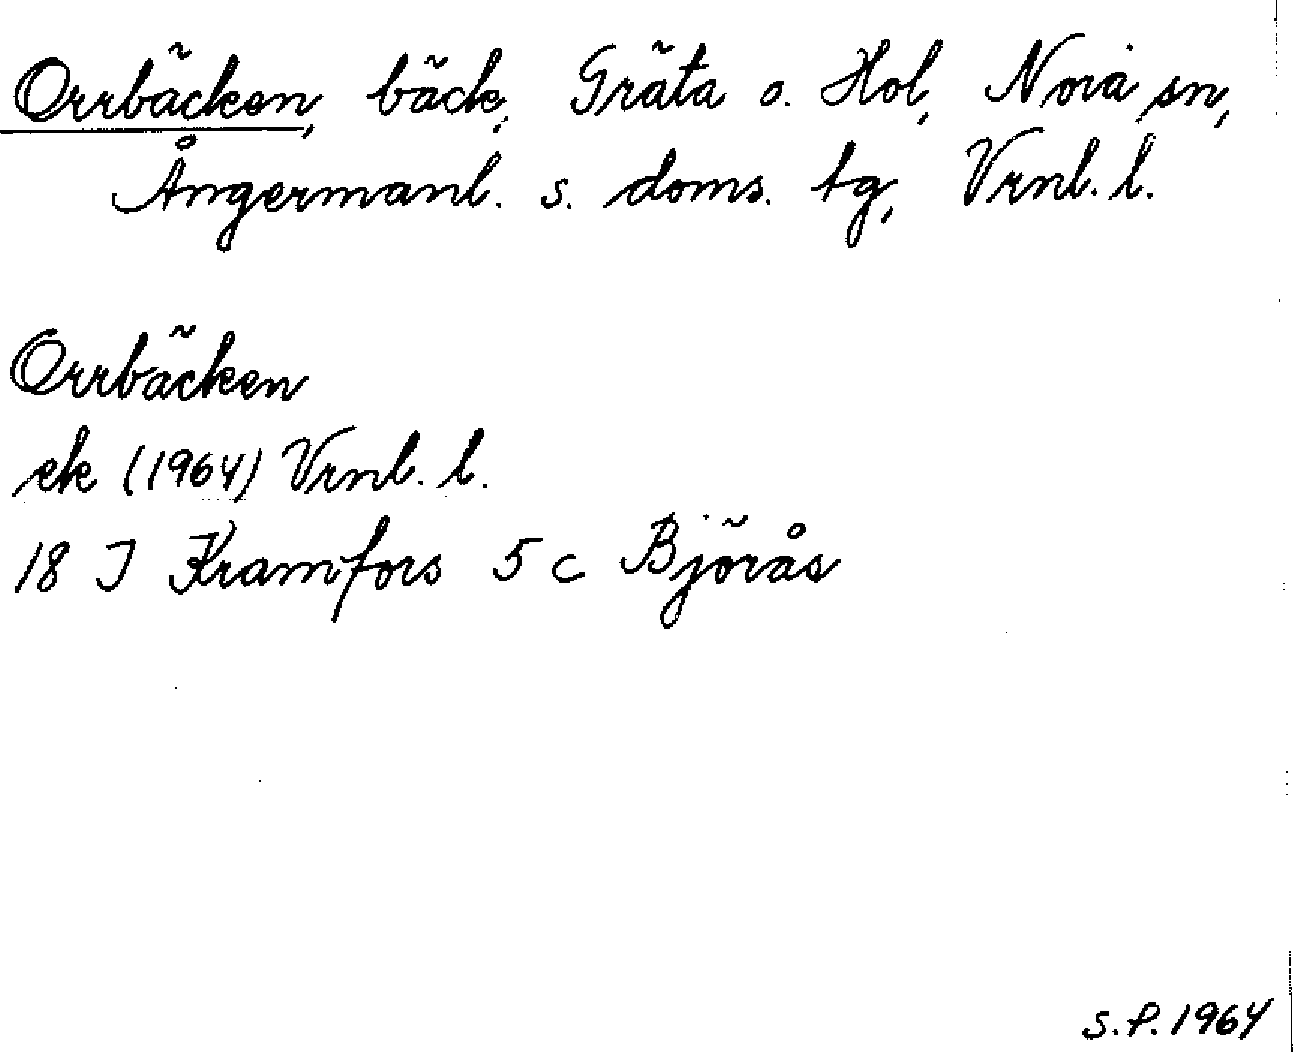 Orrbäcken, bäck, Gräta o. Hol, Nora sn,
Ångermanl. s. doms. tg, Vrnl. l.
Orrbäcken
ek (1964) Vrnl. l.
18 J Kramfors 5 c Björås
S.P. 1964